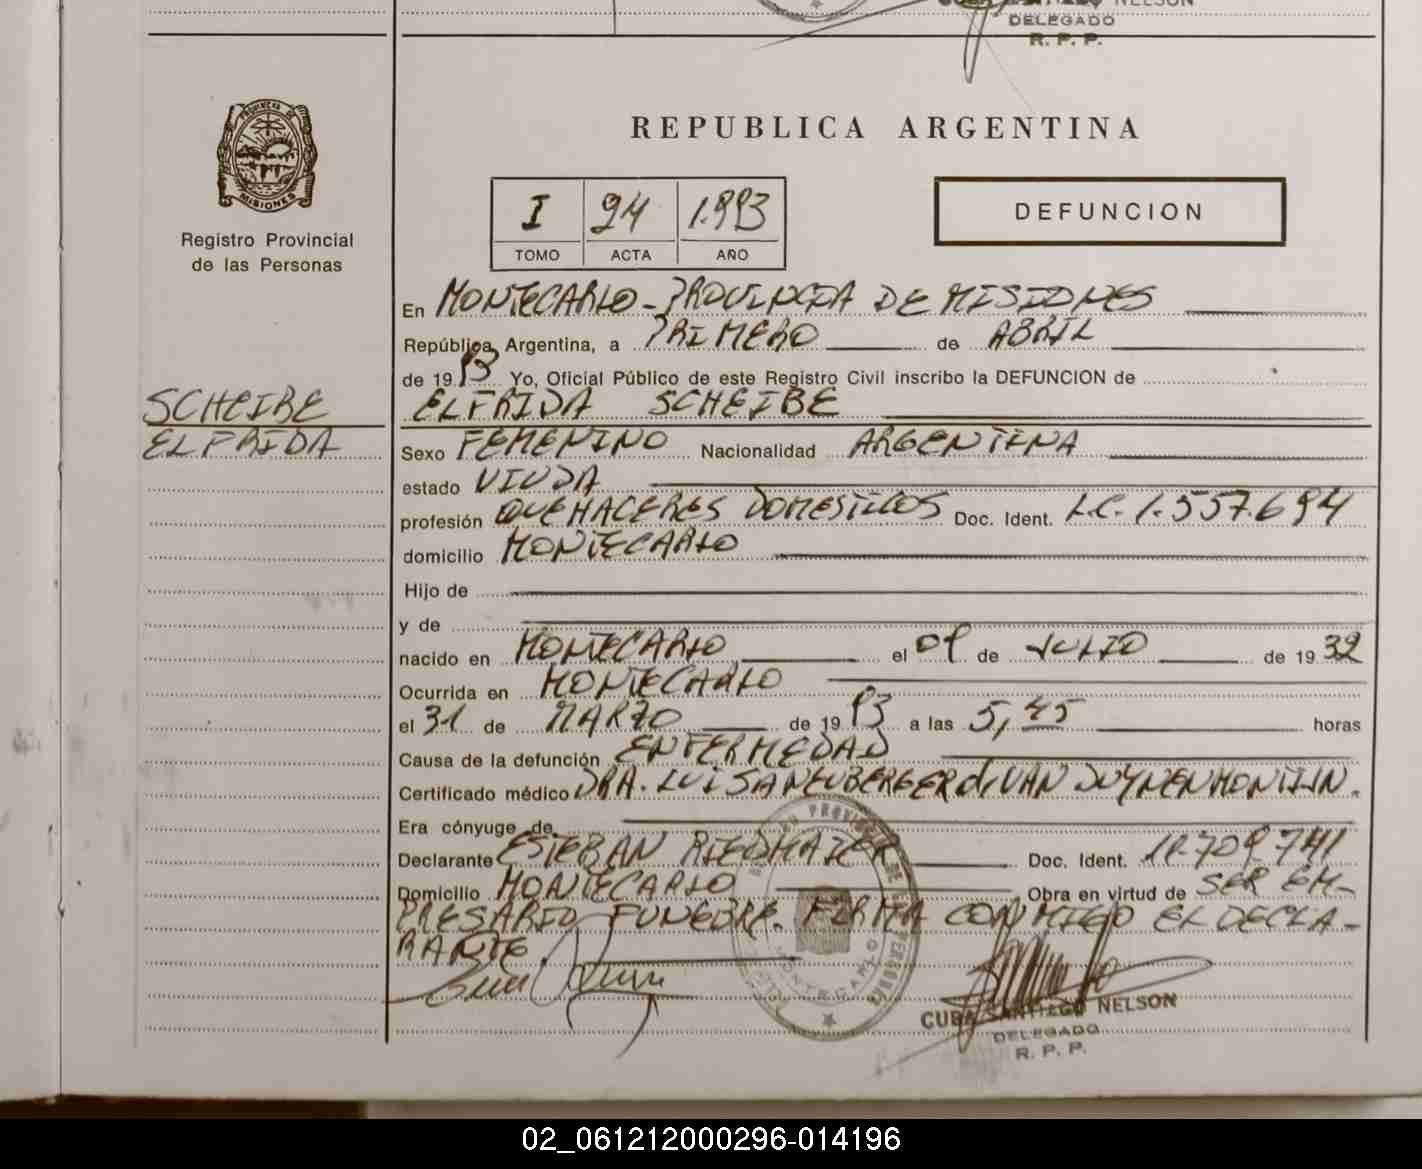 NELSON
DELEGADO
R. P. P.
PROVINCIA DE
MISIONES
Registro Provincial
de las Personas
REPUBLICA ARGENTINA
I 24 1.993
TOMO ACTA AÑO
DEFUNCION
En MONTECARLO - PROVINCIA DE MISIONES
República Argentina, a PRIMERO de ABRIL
de 19 93 Yo, Oficial Público de este Registro Civil inscribo la DEFUNCION de
SCHEIBE
ELFRIDA
ELFRIDA SCHEIBE
Sexo FEMENINO Nacionalidad ARGENTINA
estado VIUDA
profesión QUEHACERES DOMESTICOS Doc. Ident. L.C. 1.557.694
domicilio MONTECARLO
Hijo de
y de
nacido en MONTECARLO el 09 de JULIO de 19 32
Ocurrida en MONTECARLO
el 31 de MARZO de 19 93 a las 5,45 horas
Causa de la defunción ENFERMEDAD
Certificado médico DRA. LUISA NEUBERGER d. VAN DUYNENMONTIJN.
Era cónyuge de
Declarante ESTEBAN RIEDMAIER Doc. Ident. 11.709.741
Domicilio MONTECARLO Obra en virtud de SER EM-
PRESARIO FUNEBRE. FIRMA CONMIGO EL DECLA-
RANTE.
MONTECARLO
CUBA SANTIAGO NELSON
DELEGADO
R. P. P.
02_061212000296-014196